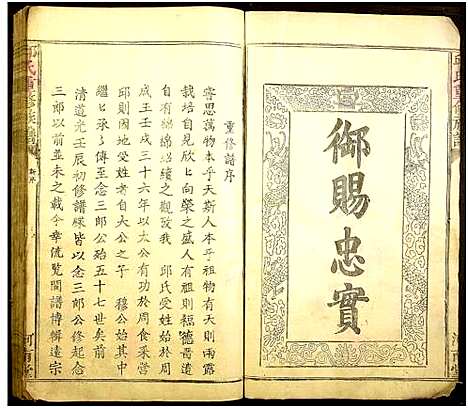 邱氏重修族譜
御賜忠實
河南堂
重修譜序
嘗思萬物本乎天斯人本乎祖物有則雨露
栽培自見欣欣向榮之盛人有祖則積德善遺
自有綿綿繩繩之觀設我 邱氏受姓始於周
成王壬戌三十六年以太公有功於周食采營
邱則因地受姓者自大公之子 穆公始其中
繼繼承承傳至念三郎公始五十七世矣前
清道光壬辰初修譜牒皆以念三郎公修起念
三郎以前並未之載今幸流覽閩譜博輯遠宗
邱氏重修族譜
新序
河南堂